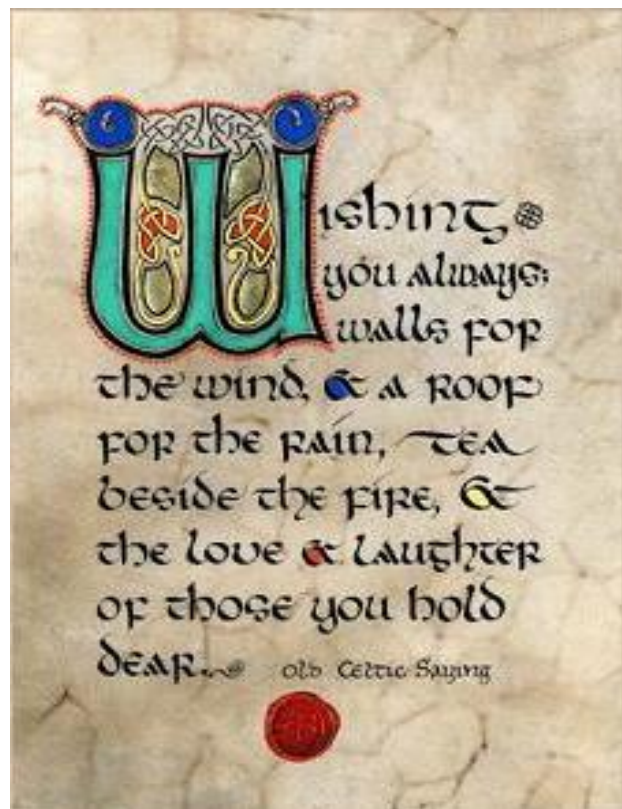 Wishing
you always;
walls for
the wind, & a roof
for the rain, tea
beside the fire, &
the love & laughter
of those you hold
dear.
Old Celtic Saying